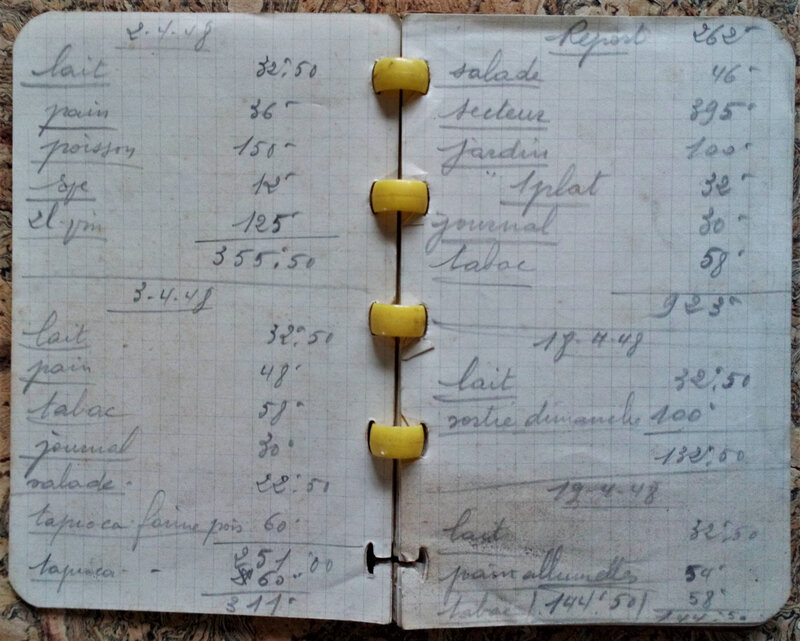 2-4-48
lait 32"50
pain 36"
poisson 150"
12"
2l vin 125"
355"50
3-4-48
lait 32"50
pain 48"
tabac 58"
journal 30"
salade 22"50
tapioca farine pois 60"
251"00
tapioca - 60"
311"
Report 262"
salade 46"
secteur 395"
jardin 100"
" 1 plat 32"
journal 30"
tabac 58"
923"
18-4-48
lait 32"50
dimanche 100"
132"50
19-4-48
lait 32"50
pain allumettes 54"
tabac (144"50) 58"
144"50